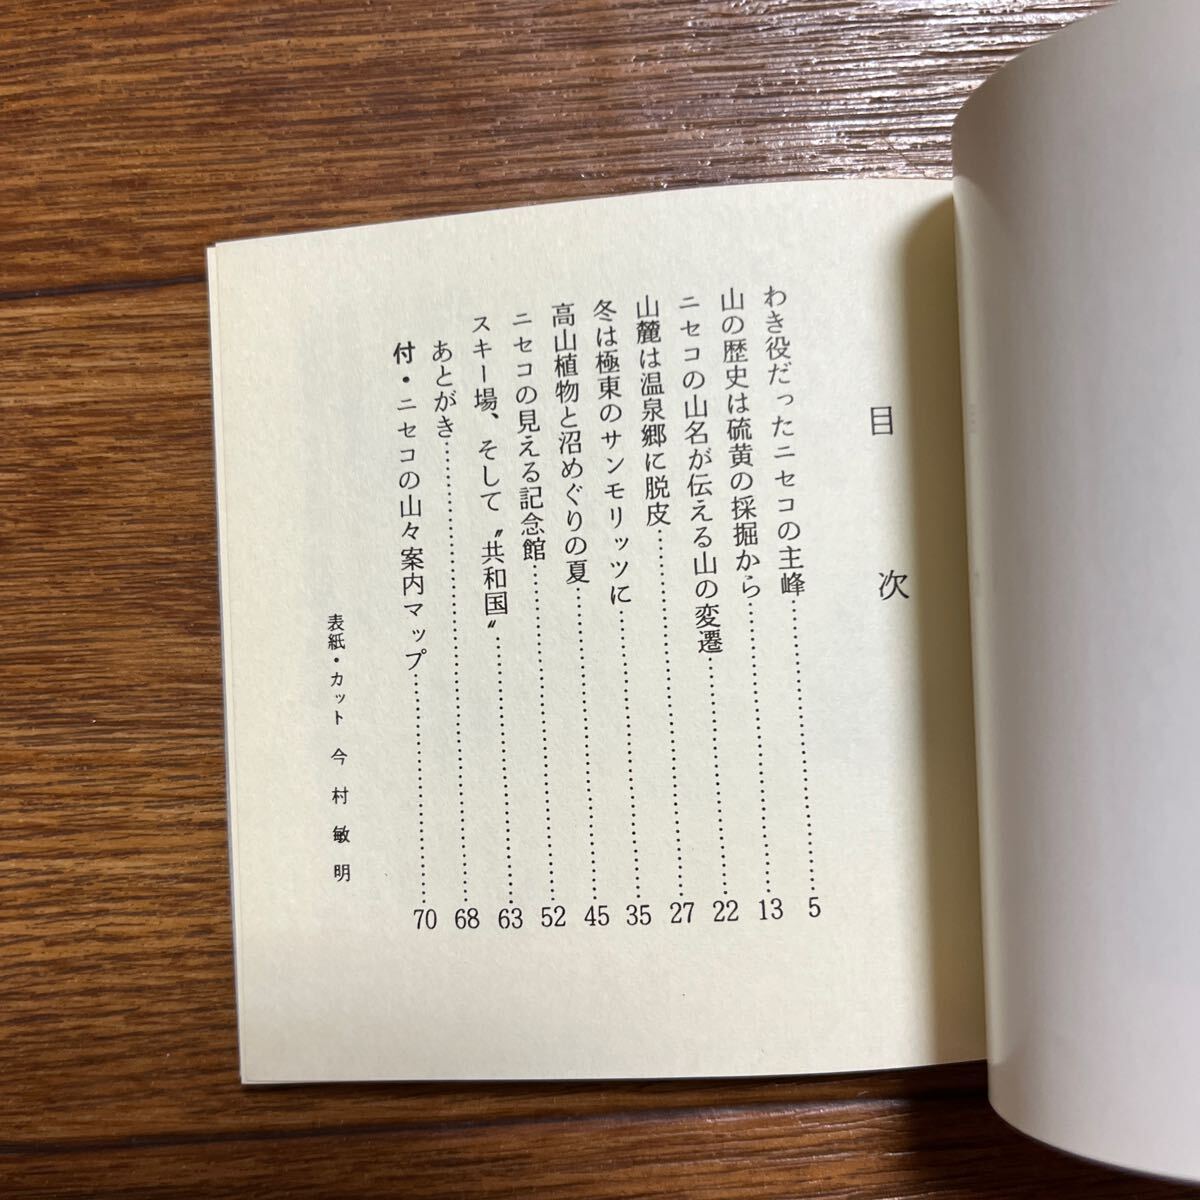 目次
わき役だったニセコの主峰……………………5
山の歴史は硫黄の採掘から……………………13
ニセコの山名が伝える山の変遷………………22
山麓は温泉郷に脱皮……………………………27
冬は極東のサンモリッツに……………………35
高山植物と沼めぐりの夏………………………45
ニセコの見える記念館…………………………52
スキー場、そして〝共和国〟…………………63
あとがき…………………………………………68
付・ニセコの山々案内マップ…………………70
表紙・カット 今村敏明